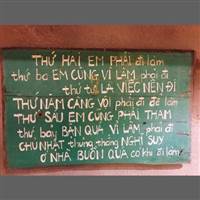 THỨ HAI EM PHẢI đi làm
thứ ba EM CŨNG VÌ LÀM phải đi
thứ tư LÀ VIỆC NÊN ĐI
THỨ NĂM CÀNG VỘI phải đi để làm
THỨ SÁU EM CŨNG PHẢI THAM
thứ bảy BẬN QUÁ VÌ LÀM phải đi
CHỦ NHẬT thủng thẳng NGHĨ SUY
Ở NHÀ BUỒN QUÁ có khi đi làm